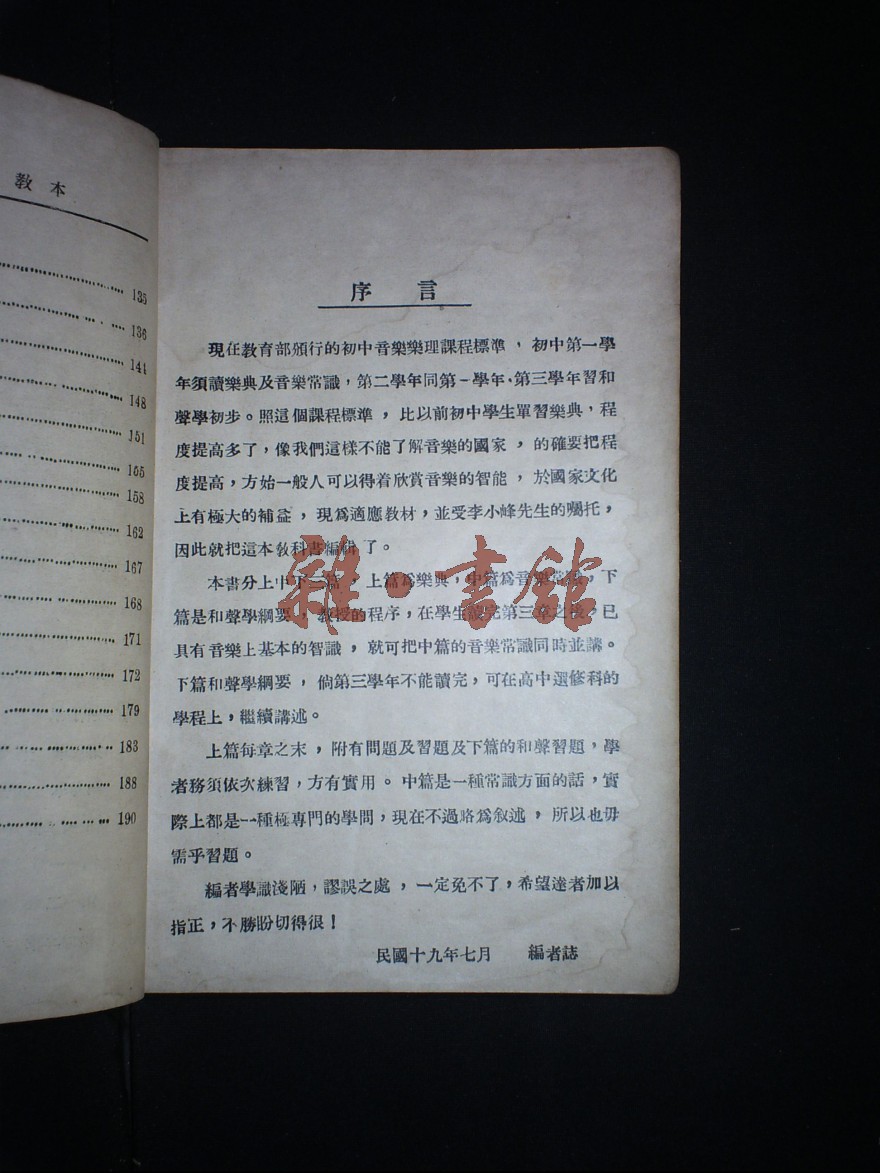 教本
135
136
144
148
151
155
158
162
167
168
171
172
179
183
188
190
序言
現在教育部頒行的初中音樂樂理課程標準,初中第一學
年須讀樂典及音樂常識,第二學年同第一學年·第三學年習和
聲學初步。照這個課程標準,比以前初中學生單習樂典,程
度提高多了,像我們這樣不能了解音樂的國家,的確要把程
度提高,方始一般人可以得着欣賞音樂的智能,於國家文化
上有極大的補益,現爲適應教材,並受李小峰先生的囑托,
因此就把這本教科書編輯了。
本書分上中下三篇,上篇爲樂典,中篇爲音樂常識,下
篇是和聲學綱要,教授的程序,在學生讀完第三章之後,已
具有音樂上基本的智識,就可把中篇的音樂常識同時並講。
下篇和聲學綱要,倘第三學年不能讀完,可在高中選修科的
學程上,繼續講述。
上篇每章之末,附有問題及習題及下篇的和聲習題,學
者務須依次練習,方有實用。中篇是一種常識方面的話,實
際上都是一種極專門的學問,現在不過略爲叙述,所以也毋
需乎習題。
編者學識淺陋,謬誤之處,一定免不了,希望達者加以
指正,不勝盼切得很!
民國十九年七月 編者誌
雜·書館